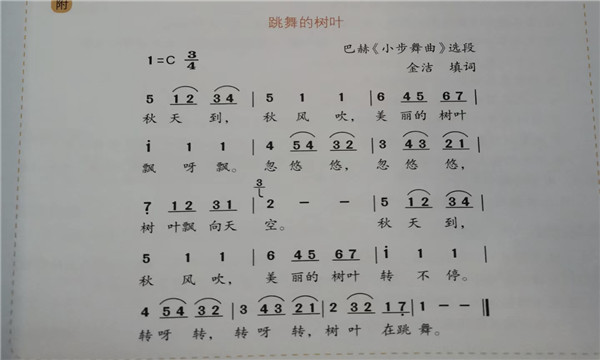 附
跳舞的树叶
1=C 3/4
巴赫《小步舞曲》选段
金洁 填词
5 12 34 | 5 1 1 | 6 45 67 |
秋 天 到， 秋 风 吹， 美 丽的 树叶
i 1 1 | 4 54 32 | 3 43 21 |
飘 呀 飘。 忽 悠 悠， 忽 悠 悠，
7 12 31 | 3 2 - - | 5 12 34 |
树 叶飘 向天 空。 秋 天 到，
5 1 1 | 6 45 67 | i 1 1 |
秋 风 吹， 美 丽的 树叶 转 不 停。
4 54 32 | 3 43 21 | 2 32 17 | 1 - - ‖
转 呀 转， 转 呀 转， 树 叶 在跳 舞。